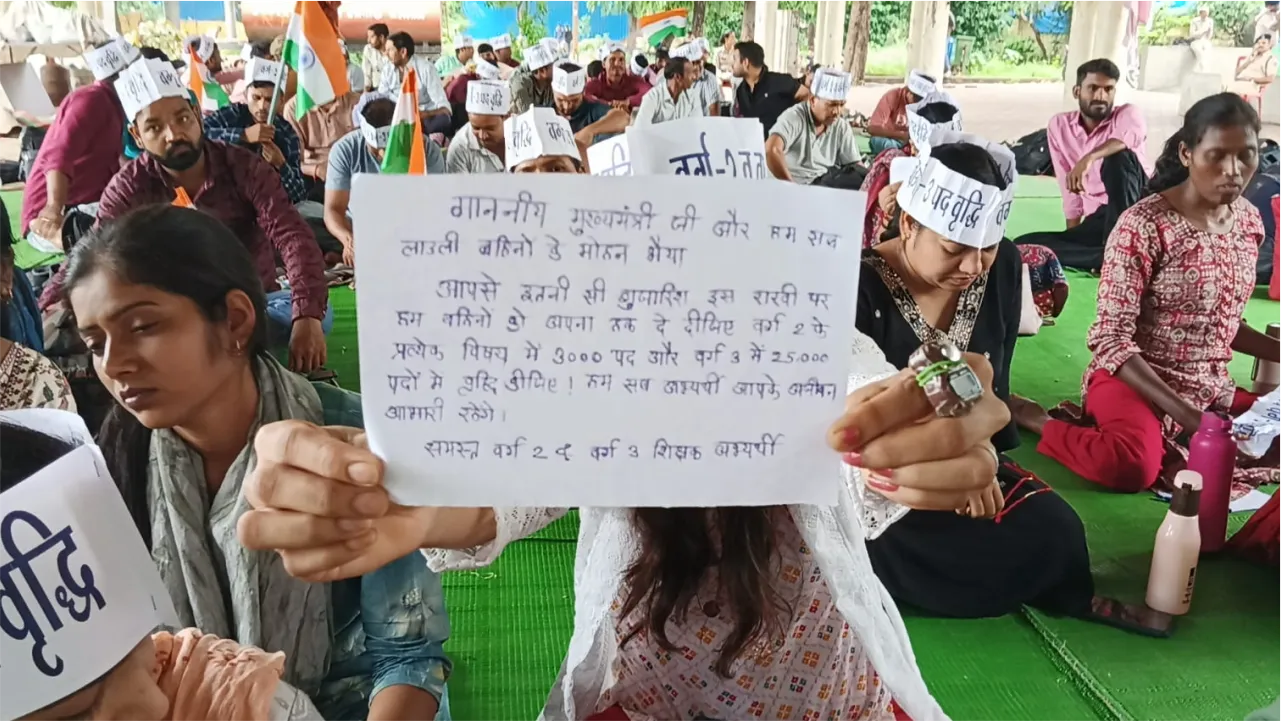 वृद्धि
वर्ग-2
2 पद वृद्धि
माननीय मुख्यमंत्री जी और हम सब
लाडली बहिनों के मोहन भैया
आपसे इतनी सी गुजारिश इस राखी पर
हम बहिनों को अपना हक दे दीजिए वर्ग 2 के
प्रत्येक विषय में 3000 पद और वर्ग 3 में 25000
पदों में वृद्धि कीजिए। हम सब अभ्यर्थी आपके आजीवन
आभारी रहेंगे।
समस्त वर्ग 2 व वर्ग 3 शिक्षक अभ्यर्थी
वृद्धि